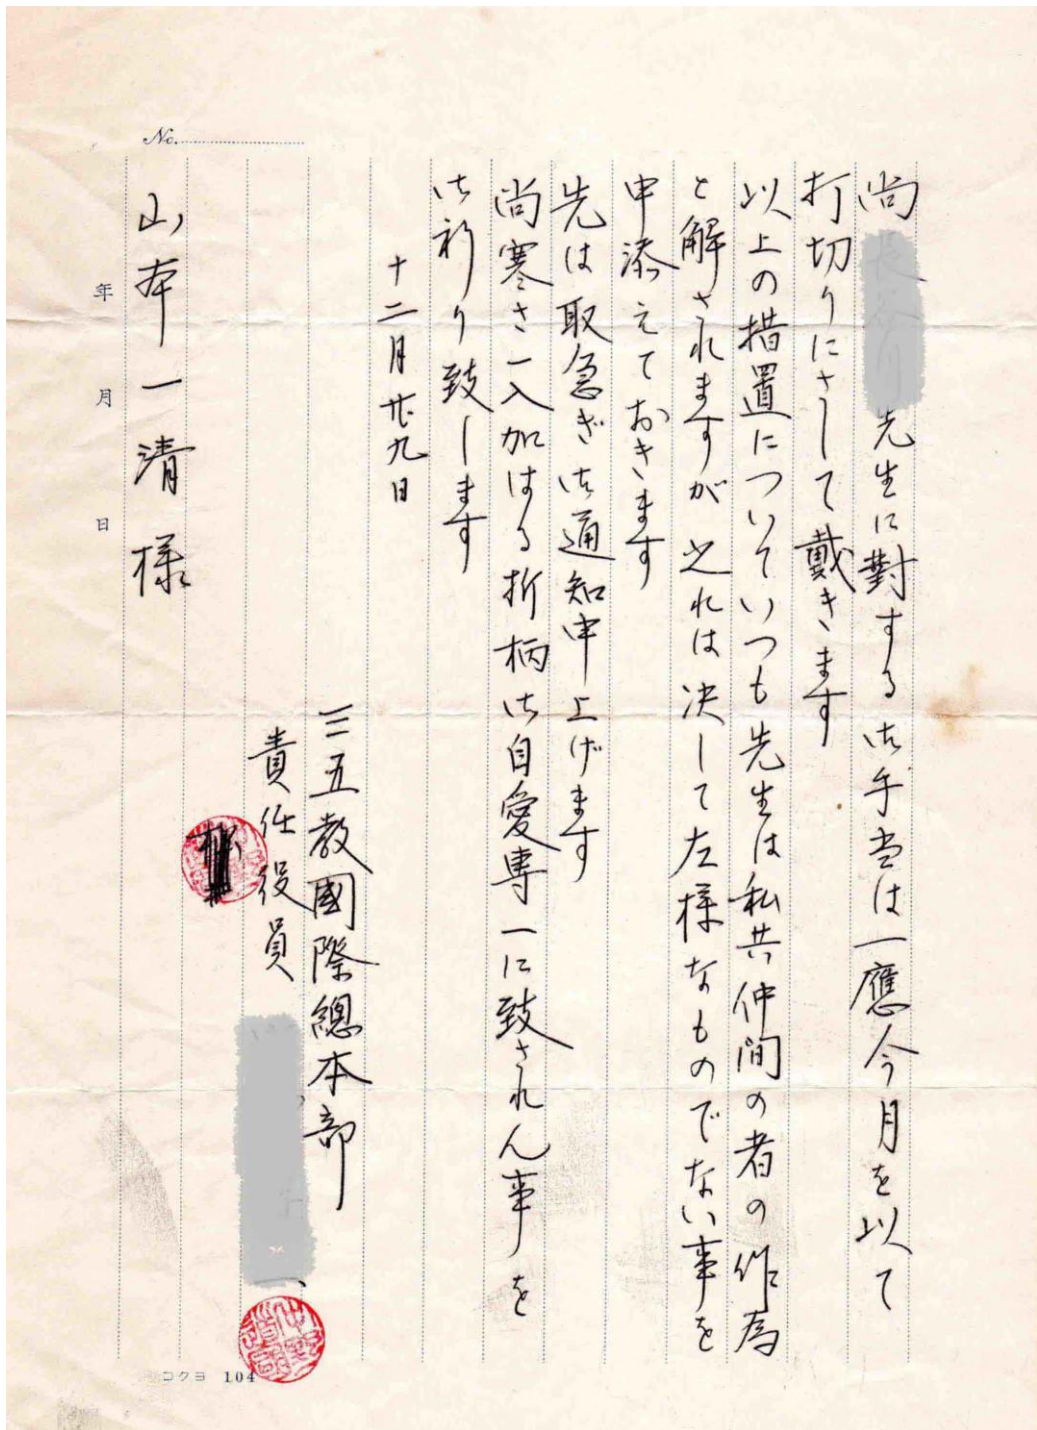 No.
尚
先生に對する御手当は一應今月を以て
打切りにさして戴きます
以上の措置についていつも先生は私共仲間の者の作為
と解されますが之れは決して左様なものでない事を
申添えておきます
先は取急ぎ御通知申上げます
尚寒さ一入加はる折柄御自愛専一に致されん事を
御祈り致します
十二月廿九日
三五教國際總本部
責任役員
山本一清様
年 月 日
コクヨ 104